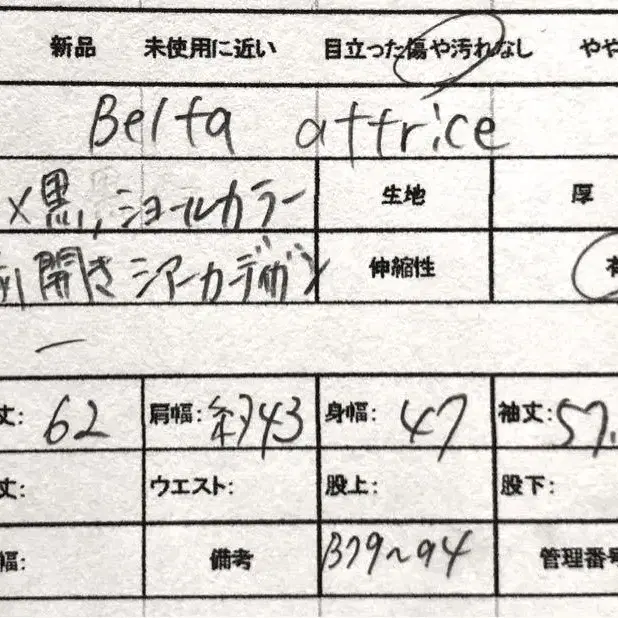 新品 未使用に近い 目立った傷や汚れなし やや
Belta attrice
×黒, ショールカラー 生地 厚
開き シアーカーディガン 伸縮性 有
丈: 62 肩幅: 約43 身幅: 47 袖丈: 57.
丈: ウエスト: 股上: 股下:
幅: 備考 B79~94 管理番号